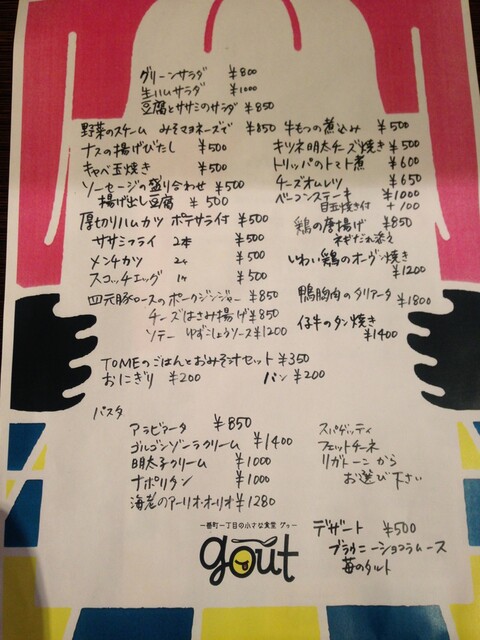 グリーンサラダ ¥800
生ハムサラダ ¥1000
豆腐とササミのサラダ ¥850
野菜のスチーム みそマヨネーズで ¥850
ナスの揚げびたし ¥500
キャベ玉焼き ¥500
ソーセージの盛り合わせ ¥500
揚げ出し豆腐 ¥500
厚切りハムカツ ポテサラ付 ¥500
ササミフライ 2本 ¥500
メンチカツ 2ケ ¥500
スコッチエッグ 1ケ ¥500
四元豚ロースのポークジンジャー ¥850
チーズはさみ揚げ ¥850
ソテー ゆずこしょうソース ¥1200
牛もつの煮込み ¥500
キツネ明太チーズ焼き ¥500
トリッパのトマト煮 ¥600
チーズオムレツ ¥650
ベーコンステーキ ¥1000
目玉焼き付 +100
鶏の唐揚げ ¥850
ネギだれ添え
いわい鶏のオーヴン焼き
¥1200
鴨胸肉のタリアータ ¥1800
仔牛のタン焼き
¥1400
TOMEのごはんとおみそ汁セット ¥350
おにぎり ¥200 パン ¥200
パスタ
アラビアータ ¥850
ゴルゴンゾーラクリーム ¥1400
明太子クリーム ¥1000
ナポリタン ¥1000
海老のアーリオ・オーリオ ¥1280
スパゲッティ
フェットチーネ
リガトーニ から
お選び下さい
一番町一丁目の小さな食堂 グゥー
goût
デザート ¥500
ブラウニーショコラムース
苺のタルト